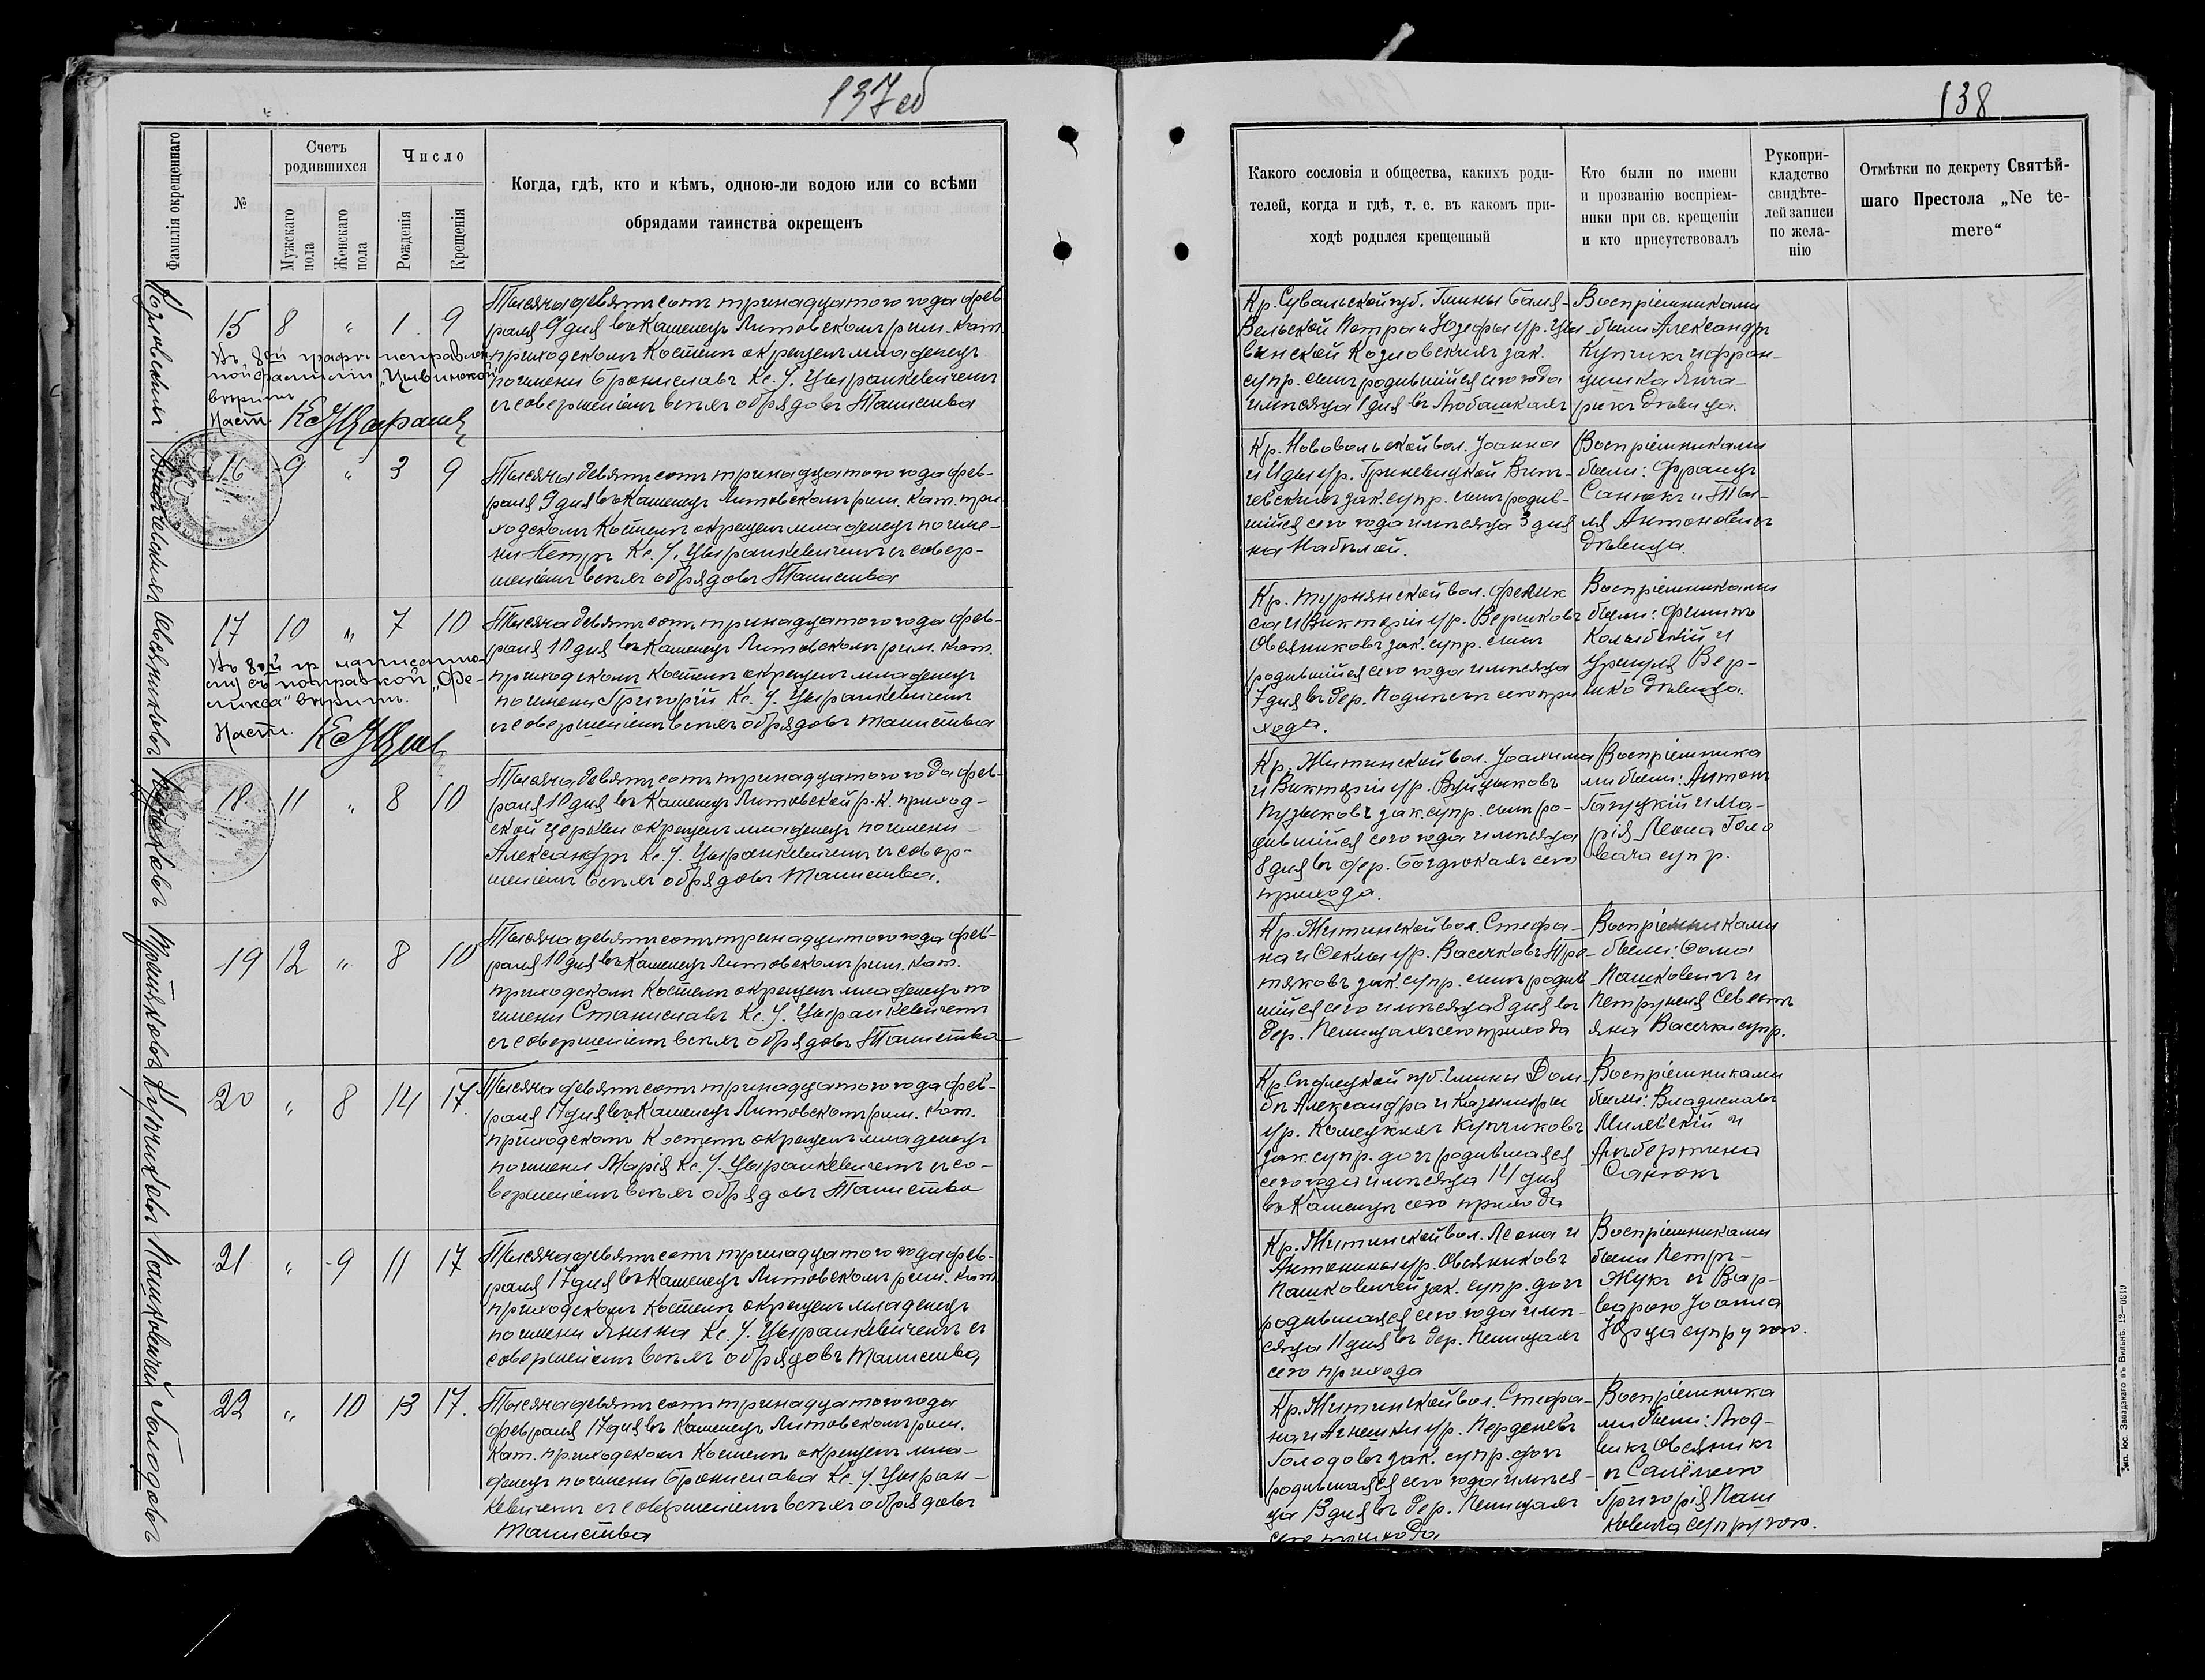 137 об
Фамилія окрещеннаго
№
Счетъ
родившихся
Мужскаго
пола
Женскаго
пола
Число
Рожденія
Крещенія
Когда, гдѣ, кто и кѣмъ, одною-ли водою или со всѣми
обрядами таинства окрещенъ
Козловскихъ
15 8 „ 1 9
Тысяча девятьсотъ тринадцатого года фев-
раля 9 дня въ Каменецъ Литовскомъ рим. кат.
приходскомъ костелѣ окрещенъ младенецъ
по имени Брониславъ Кс. У. Цыранкевичемъ
съ совершеніемъ всѣхъ обрядовъ Таинства
Въ 8ой графѣ исправлен-
ной фамиліи „Цывинской"
вѣрить
Наст.
16 9 „ 3 9
Тысяча девятьсотъ тринадцатого года фев-
раля 9 дня въ Каменецъ Литовскомъ рим. кат. при-
ходскомъ костелѣ окрещенъ младенецъ по име-
ни Петръ Кс. У. Цыранкевичемъ съ совер-
шеніемъ всѣхъ обрядовъ Таинства
Овсяниковъ
17 10 „ 7 10
Тысяча девятьсотъ тринадцатого года фев-
раля 10 дня въ Каменецъ Литовскомъ рим. кат.
приходскомъ костелѣ окрещенъ младенецъ
по имени Григорій Кс. У. Цыранкевичемъ
съ совершеніемъ всѣхъ обрядовъ таинства
Въ 8ой гр. написанно-
му съ поправкой „Фе-
ликса" вѣрить.
Наст.
Пузыковъ
18 11 „ 8 10
Тысяча девятьсотъ тринадцатого года фев-
раля 10 дня въ Каменецъ Литовской р. к. приход-
ской церкви окрещенъ младенецъ по имени
Александръ Кс. У. Цыранкевичемъ съ совер-
шеніемъ всѣхъ обрядовъ Таинства.
Третяковъ
19 12 „ 8 10
Тысяча девятьсотъ тринадцатого года фев-
раля 10 дня въ Каменецъ Литовскомъ рим. кат.
приходскомъ костелѣ окрещенъ младенецъ по
имени Станиславъ Кс. У. Цыранкевичемъ
съ совершеніемъ всѣхъ обрядовъ Таинства
Купчиковъ
20 „ 8 14 17.
Тысяча девятьсотъ тринадцатого года фев-
раля 17 дня въ Каменецъ Литовскомъ рим. кат.
приходскомъ костелѣ окрещенъ младенецъ
по имени Марія Кс. У. Цыранкевичемъ съ со-
вершеніемъ всѣхъ обрядовъ Таинства
Пашковичей
21 „ 9 11 17
Тысяча девятьсотъ тринадцатого года фев-
раля 17 дня въ Каменецъ Литовскомъ рим. кат.
приходскомъ костелѣ окрещенъ младенецъ
по имени Янина Кс. У. Цыранкевичемъ съ
совершеніемъ всѣхъ обрядовъ Таинства
Голодовъ
22 „ 10 13 17.
Тысяча девятьсотъ тринадцатого года
февраля 17 дня въ Каменецъ Литовскомъ рим.
кат. приходскомъ костелѣ окрещенъ мла-
денецъ по имени Бронислава Кс. У. Цыран-
кевичемъ съ совершеніемъ всѣхъ обрядовъ
Таинства
138
Какого сословія и общества, какихъ роди-
телей, когда и гдѣ, т. е. въ какомъ при-
ходѣ родился крещенный
Кто были по имени
и прозванію воспріем-
ники при св. крещеніи
и кто присутствовалъ
Рукопри-
кладство
свидѣте-
лей записи
по жела-
нію
Отмѣтки по декрету Святѣй-
шаго Престола „Ne te-
mere“
Кр. Сувальской губ. Гмины
Петра и Юзефы ур. Цы-
винской Козловскихъ зак.
супр. сынъ родившійся сего года
и мѣсяца 1 дня въ Любашкахъ
Воспріемниками
были Александръ
Купчикъ и Фран-
цишка
дѣвица.
Кр. Нововольской вол. Іоанна
и Иды ур. Гриневицкой
зак. супр. сынъ родив-
шійся сего года и мѣсяца 3 дня
на
Воспріемниками
были: Францъ
Санюкъ и
Антоновичъ
дѣвица.
Кр. Турнянской вол. Фелик-
са и Викторіи ур. Вершковъ
Овсяниковъ зак. супр. сынъ
родившійся сего года и мѣсяца
7 дня въ дер. сего при-
хода.
Воспріемниками
были: Филиппъ
и
Уршуля Вер-
шко дѣвица.
Кр. Житинской вол. Іоахима
и Викторіи ур. Вуйциковъ
Пузыковъ зак. супр. сынъ ро-
дившійся сего года и мѣсяца
8 дня въ дер. Богдюкахъ сего
прихода.
Воспріемника
ми были: Антонъ
и Ма-
рія Леона Голо
вача супр.
Кр. Житинской вол. Стефа-
на и Феклы ур. Васечковъ Тре-
тяковъ зак. супр. сынъ родив
шійся сего и мѣсяца 8 дня въ
дер. Пелищахъ сего прихода
Воспріемниками
были: Фома
Пашкевичъ и
Петрунеля Севасть
яна Васечки супр.
Кр. Сѣдлецкой губ. гмины
Александра и Казимиры
ур. Комецкихъ Купчиковъ
зак. супр. дочь родившаяся
сего года и мѣсяца 14 дня
въ Каменцѣ сего прихода
Воспріемниками
были: Владиславъ
Милевскій и
Альбертина
Санюкъ
Кр. Житинской вол. Леона и
Антонины ур. Овсяниковъ
Пашковичей зак. супр. дочь
родившаяся сего года и мѣ-
сяца 11 дня въ дер. Пелищахъ
сего прихода
Воспріемниками
были Петръ
Жукъ съ Вар-
варою Іоанна
супругою.
Кр. Житинской вол. Стефа-
на и Агнешки ур.
Голодовъ зак. супр. дочь
родившаяся сего года и мѣся-
ца 13 дня въ дер. Пелищахъ
сего прихода
Воспріемника
ми были: Люд-
викъ Овсяникъ
съ Саломеею
Григорія Паш
кевича супругою.
Тип. Іос. Завадзкаго въ Вильнѣ. 12—0619